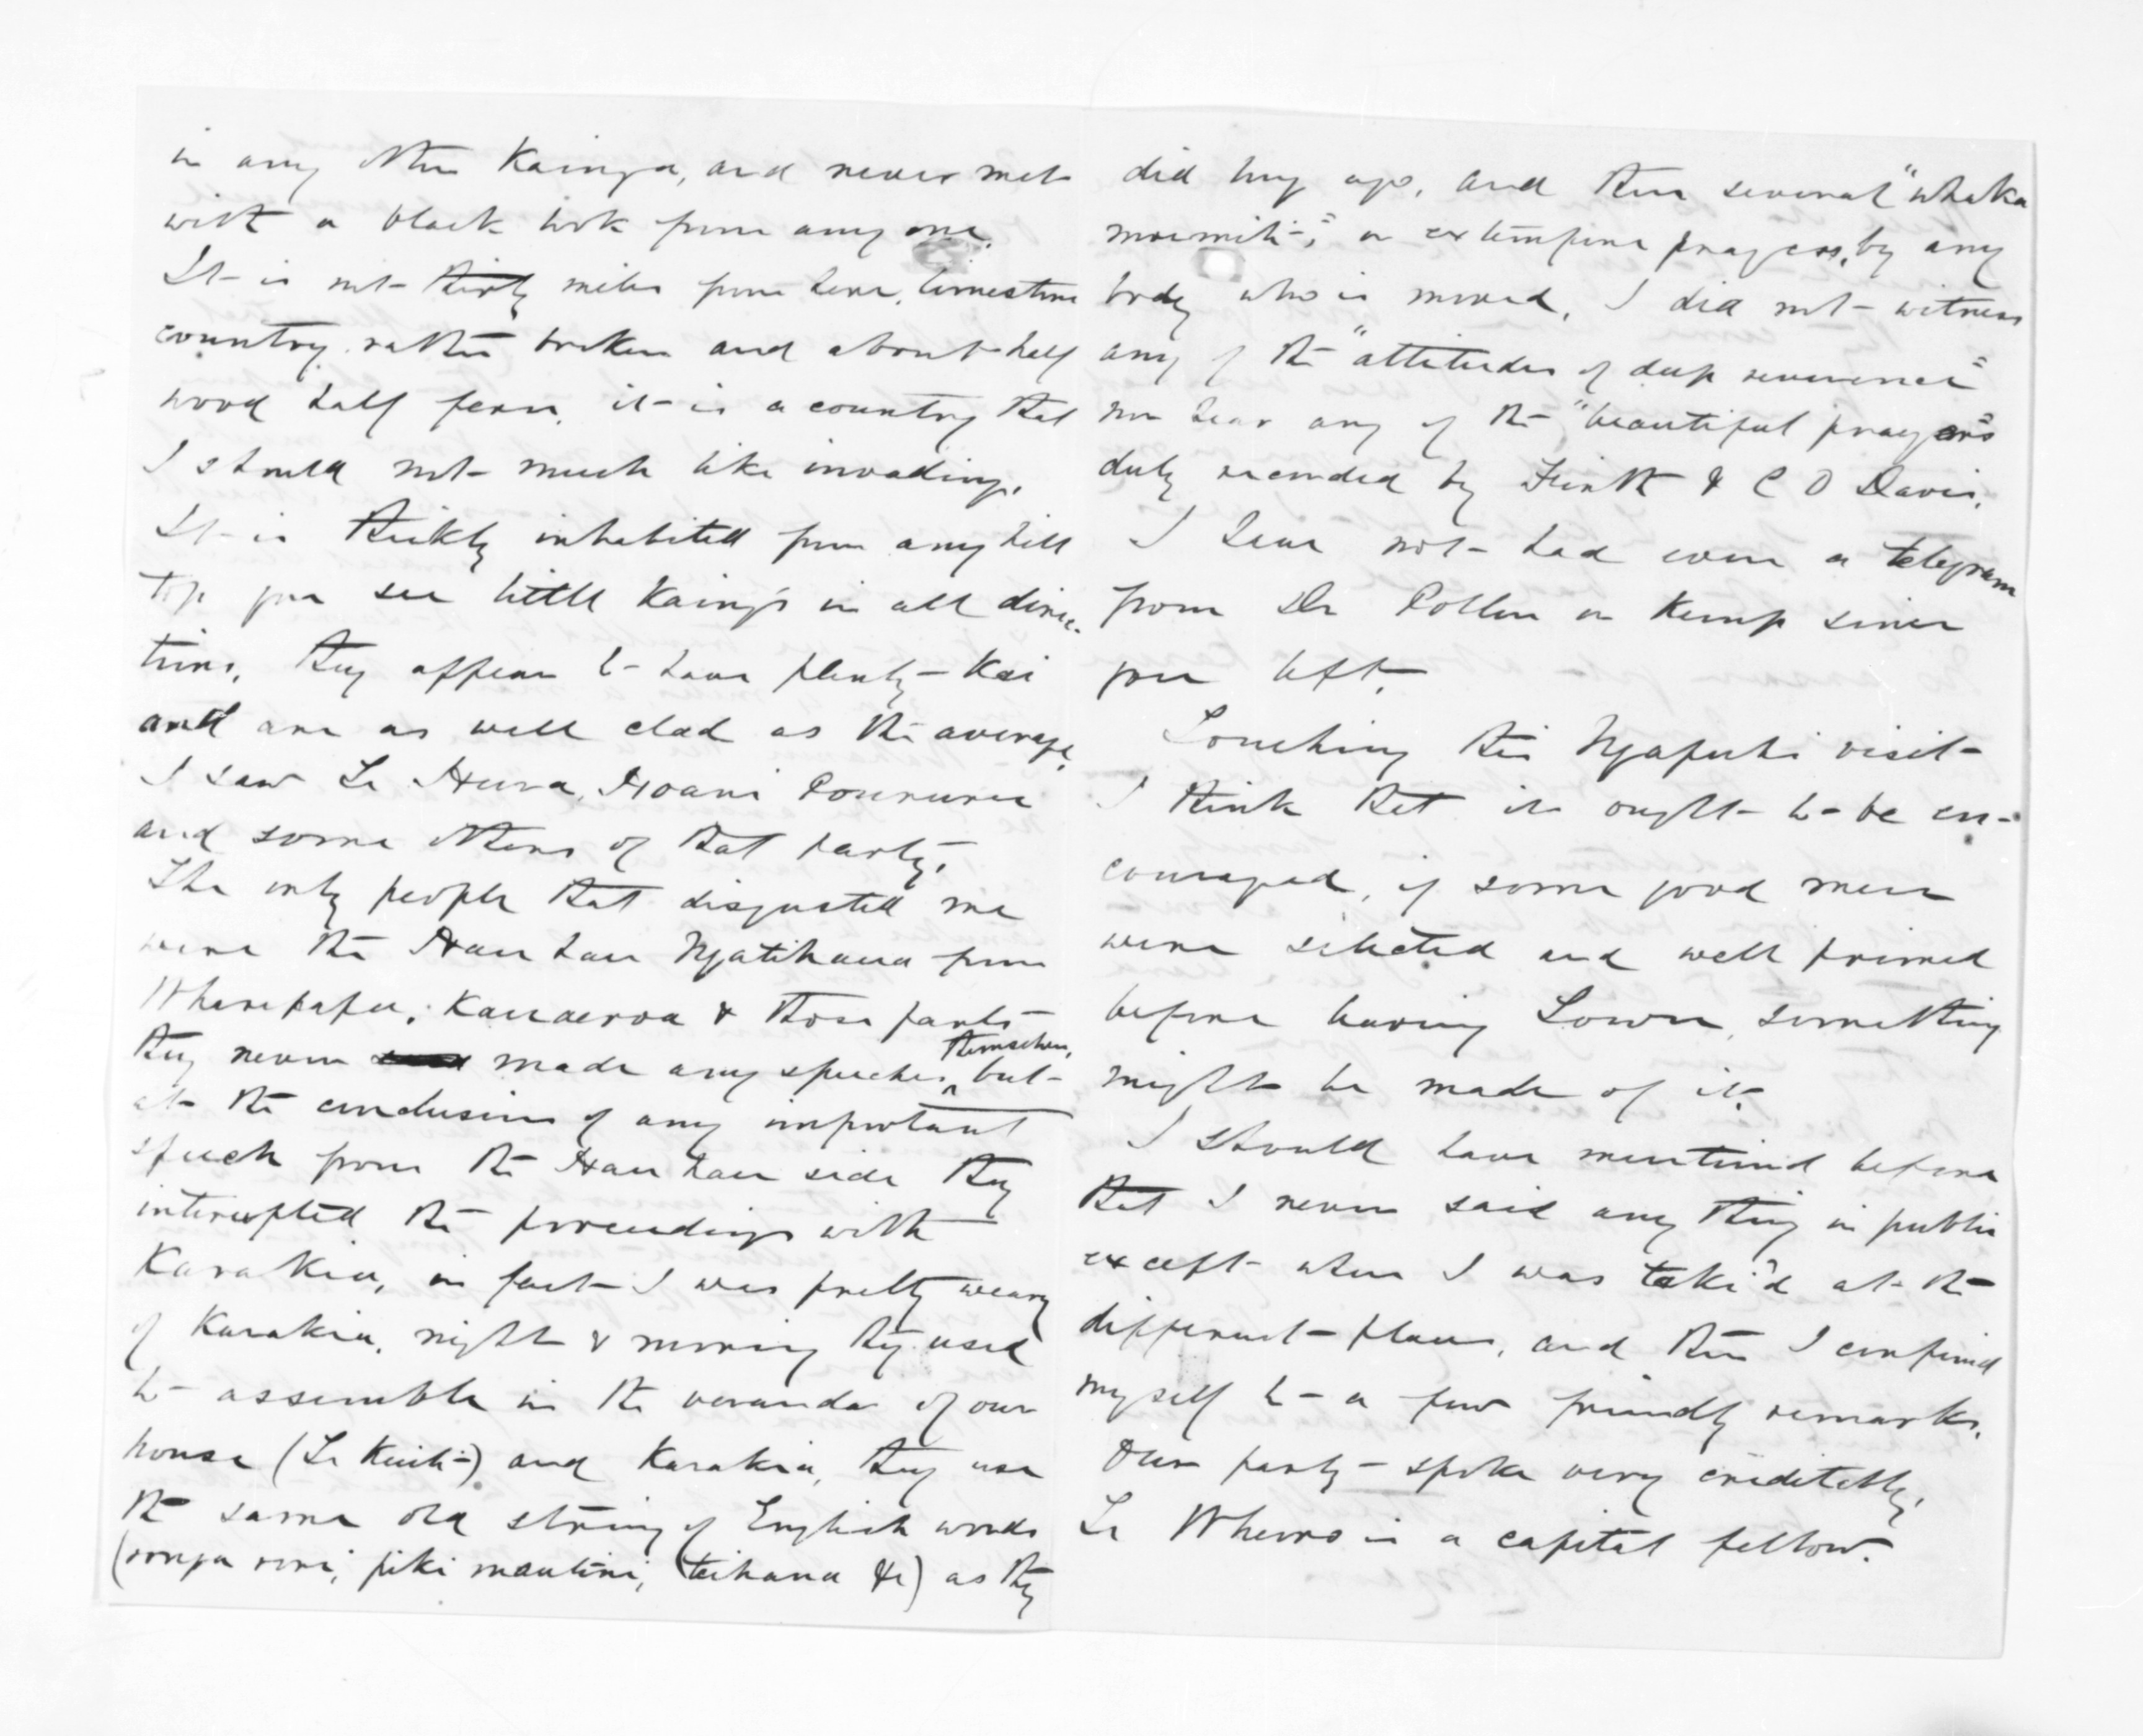 in any other Kainga, and never met
with a black look from any one.
It is not thirty miles from here, limestone
country rather broken and about half
wood half fern, it is a country that
I should not much like invading.
It is thickly inhabited from any hill
top you see little Kainga's in all direc-
tions. They appear to have plenty Kai
and are as well clad as the average.
I saw Te Hura, Hoani Poururu
and some others of that party.
The only people that disgusted me
were the Hau hau Ngatihaua from
Wharepapa, & those parts
they never made any speeches themselves, but
at the conclusion of any important
speech from the Hau hau side they
interupted the proceedings with
Karakia, in fact I was pretty weary
of Karakia, night & morning they used
to assemble in the veranda of our
house (Te Kuiti) and Karakia, they use
the same old string of English words
(ronga roni, piki mautini, teihana &c) as they
did long ago, and then several "whaka
moemiti", or extempore prayers, by any
body who is moved, I did not witness
any of the "attitudes of deep reverence"
nor hear any of the "beautiful prayers"
duly recorded by Firth & C O Davis.
I have not had even a telegram
from Dr Pollen or Kemp since
you left.
Touching this Ngapuhi visit
I think that it ought to be en-
couraged, if some good men
were selected and well primed
before leaving Town, something
might be made of it.
I should have mentioned before
that I never said any thing in public
except when I was taki'd at the
different places, and then I confined
myself to a few friendly remarks.
Our party spoke very creditably,
Te Wheoro is a capital fellow.